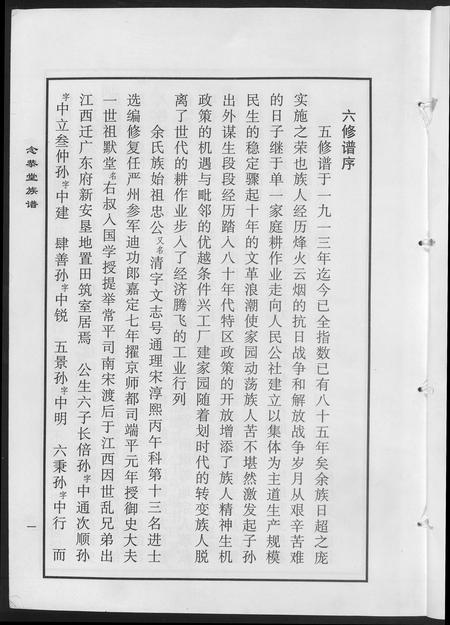 六修谱序
五修谱于一九一三年迄今已全指数已有八十五年矣余族日超之庞
实施之荣也族人经历烽火云烟的抗日战争和解放战争岁月从艰辛苦难
的日子继于单一家庭耕作业走向人民公社建立以集体为主道生产规模
民生的稳定骤起十年的文革浪潮使家园动荡族人苦不堪然激发起子孙
出外谋生段段经历踏入八十年代特区政策的开放增添了族人精神生机
政策的机遇与毗邻的优越条件兴工厂建家园随着划时代的转变族人脱
离了世代的耕作业步入了经济腾飞的工业行列
余氏族始祖忠公又名清字文志号通理宋淳熙丙午科第十三名进士
选编修复任严州参军迪功郎嘉定七年擢京师都司端平元年授御史大夫
一世祖默堂名右叔入国学授提举常平司南宋渡后于江西因世乱兄弟出
江西迁广东府新安垦地置田筑室居焉 公生六子长倍孙字中通次顺孙
字中立叁仲孙字中建 肆善孙字中锐 五景孙字中明 六秉孙字中行 而
念恭堂族谱
一